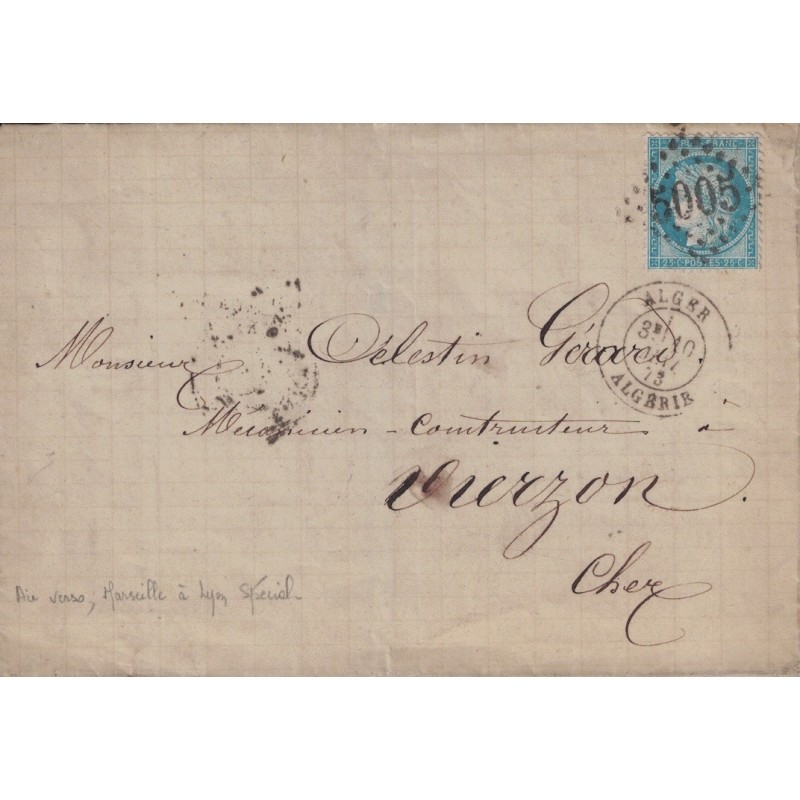 REPUB FRANC
5005
25 C POSTES 25 C
ALGER
10
73
ALGÉRIE
Monsieur Célestin Gérard.
Mécanicien - Constructeur à
Vierzon.
Cher
Au verso, Marseille à Lyon Spécial